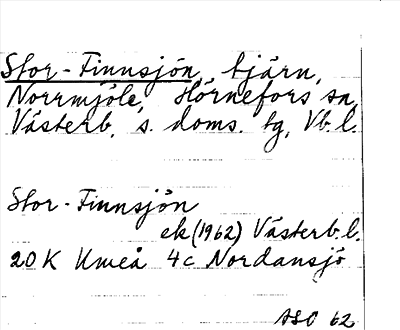 Stor-Finnsjön, tjärn,
Norrmjöle, Hörnefors sn,
Västerb. s. doms. tg, Vb. l.
Stor-Finnsjön
ek (1962) Västerb. l.
20 K Umeå 4c Nordansjö
ASO 62